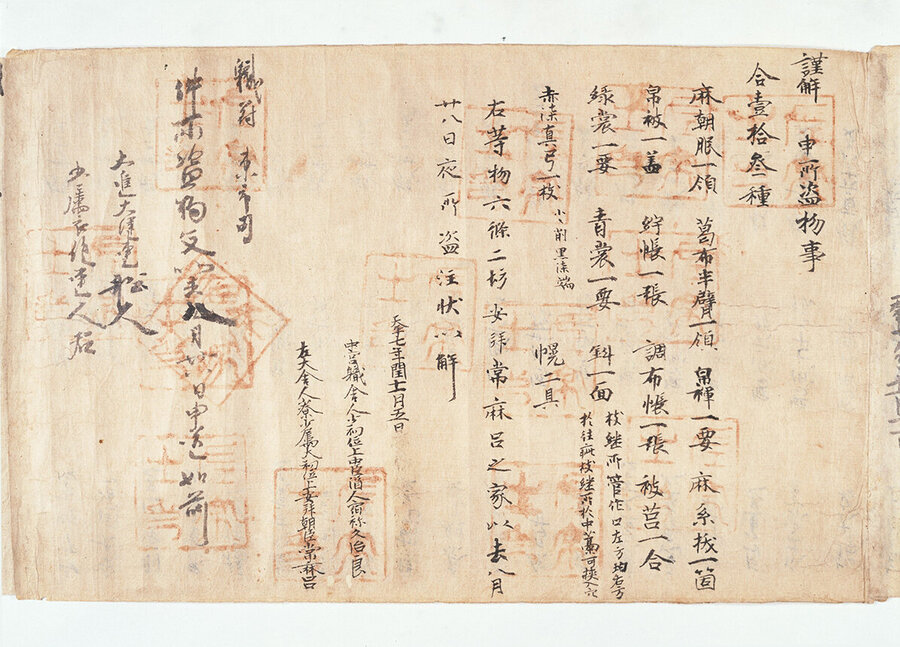 謹解 申所盗物事
合壹拾叁種
麻朝服一領 葛布半臂一領 帛褌一要 麻糸抜一箇
帛被一盖 紵帳一張 調布帳一張 被筥一合
緑裳一要 青裳一要 斜一面 枚継所管作口左方均右方
於往疵枚継所於中藁可挟入穴
赤漆真弓一枝 小々削黒漆端 幌二具
右等物六條二坊安拝常麻呂之家以去八月
廿八日夜所盗注状以解
天平七年閏十一月五日
中宮職舎人少初位上中臣酒人宿祢久治良
左大舎人寮少属大初位上安拝朝臣常麻呂
職符 東市司
件所盗物 八月廿八日申送如前
大進大津連船人
少属 連人君